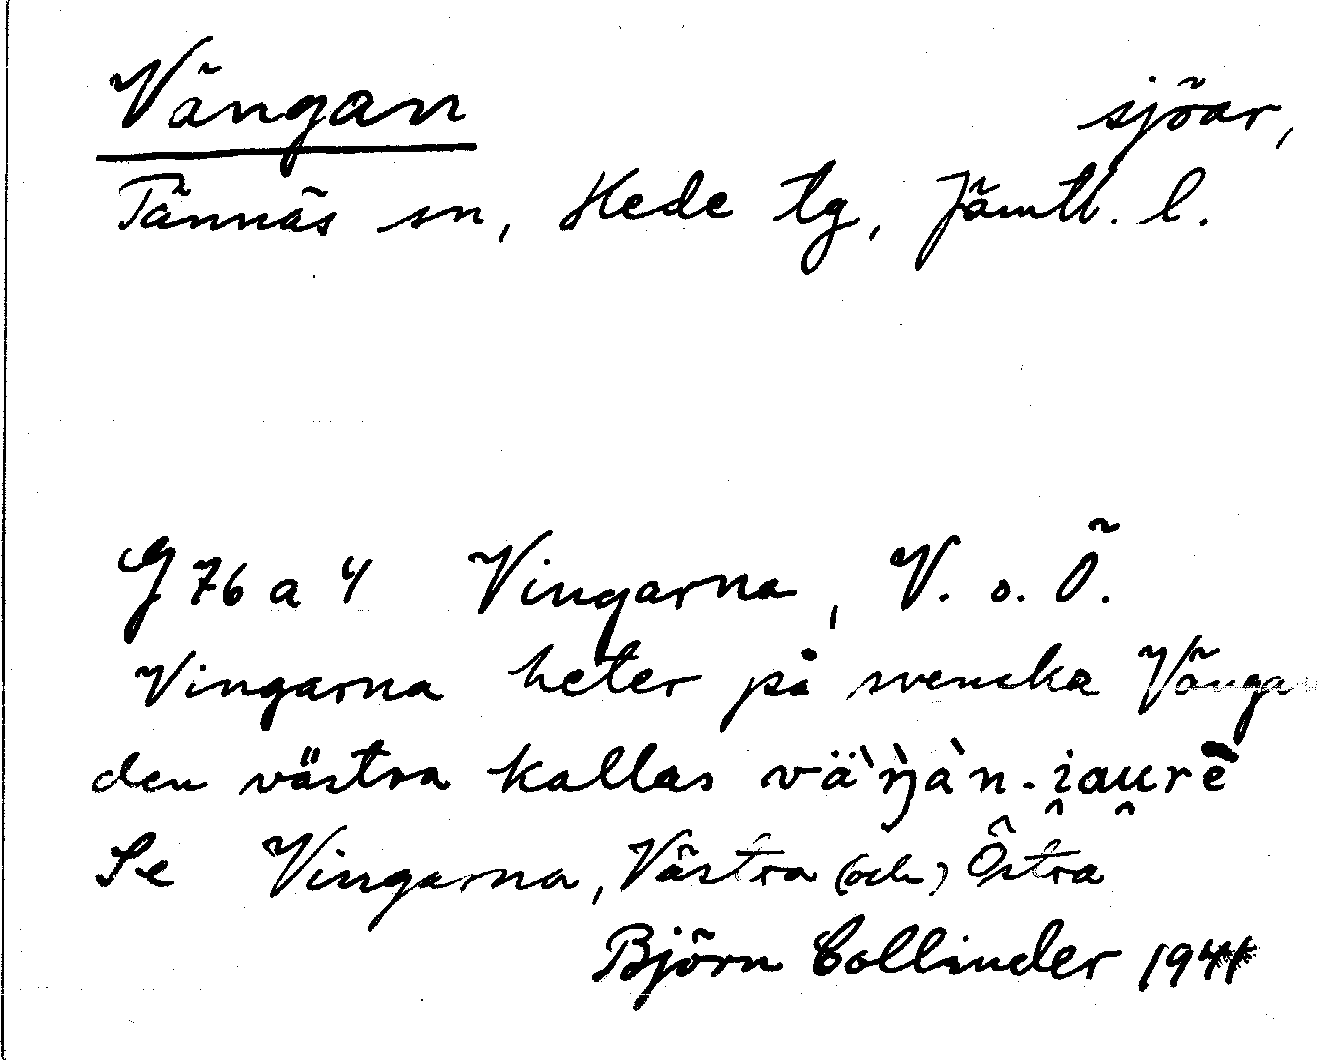 Vängan sjöar,
Tännäs sn, Hede tg, Jämtl. l.
G 76 a 4 Vingarna, V. o. Ö.
Vingarna heter på svenska Vängan
den västra kallas vä̀ŋàn-i̭aṷrē
Se Vingarna, Västra (och) Östra
Björn Collinder